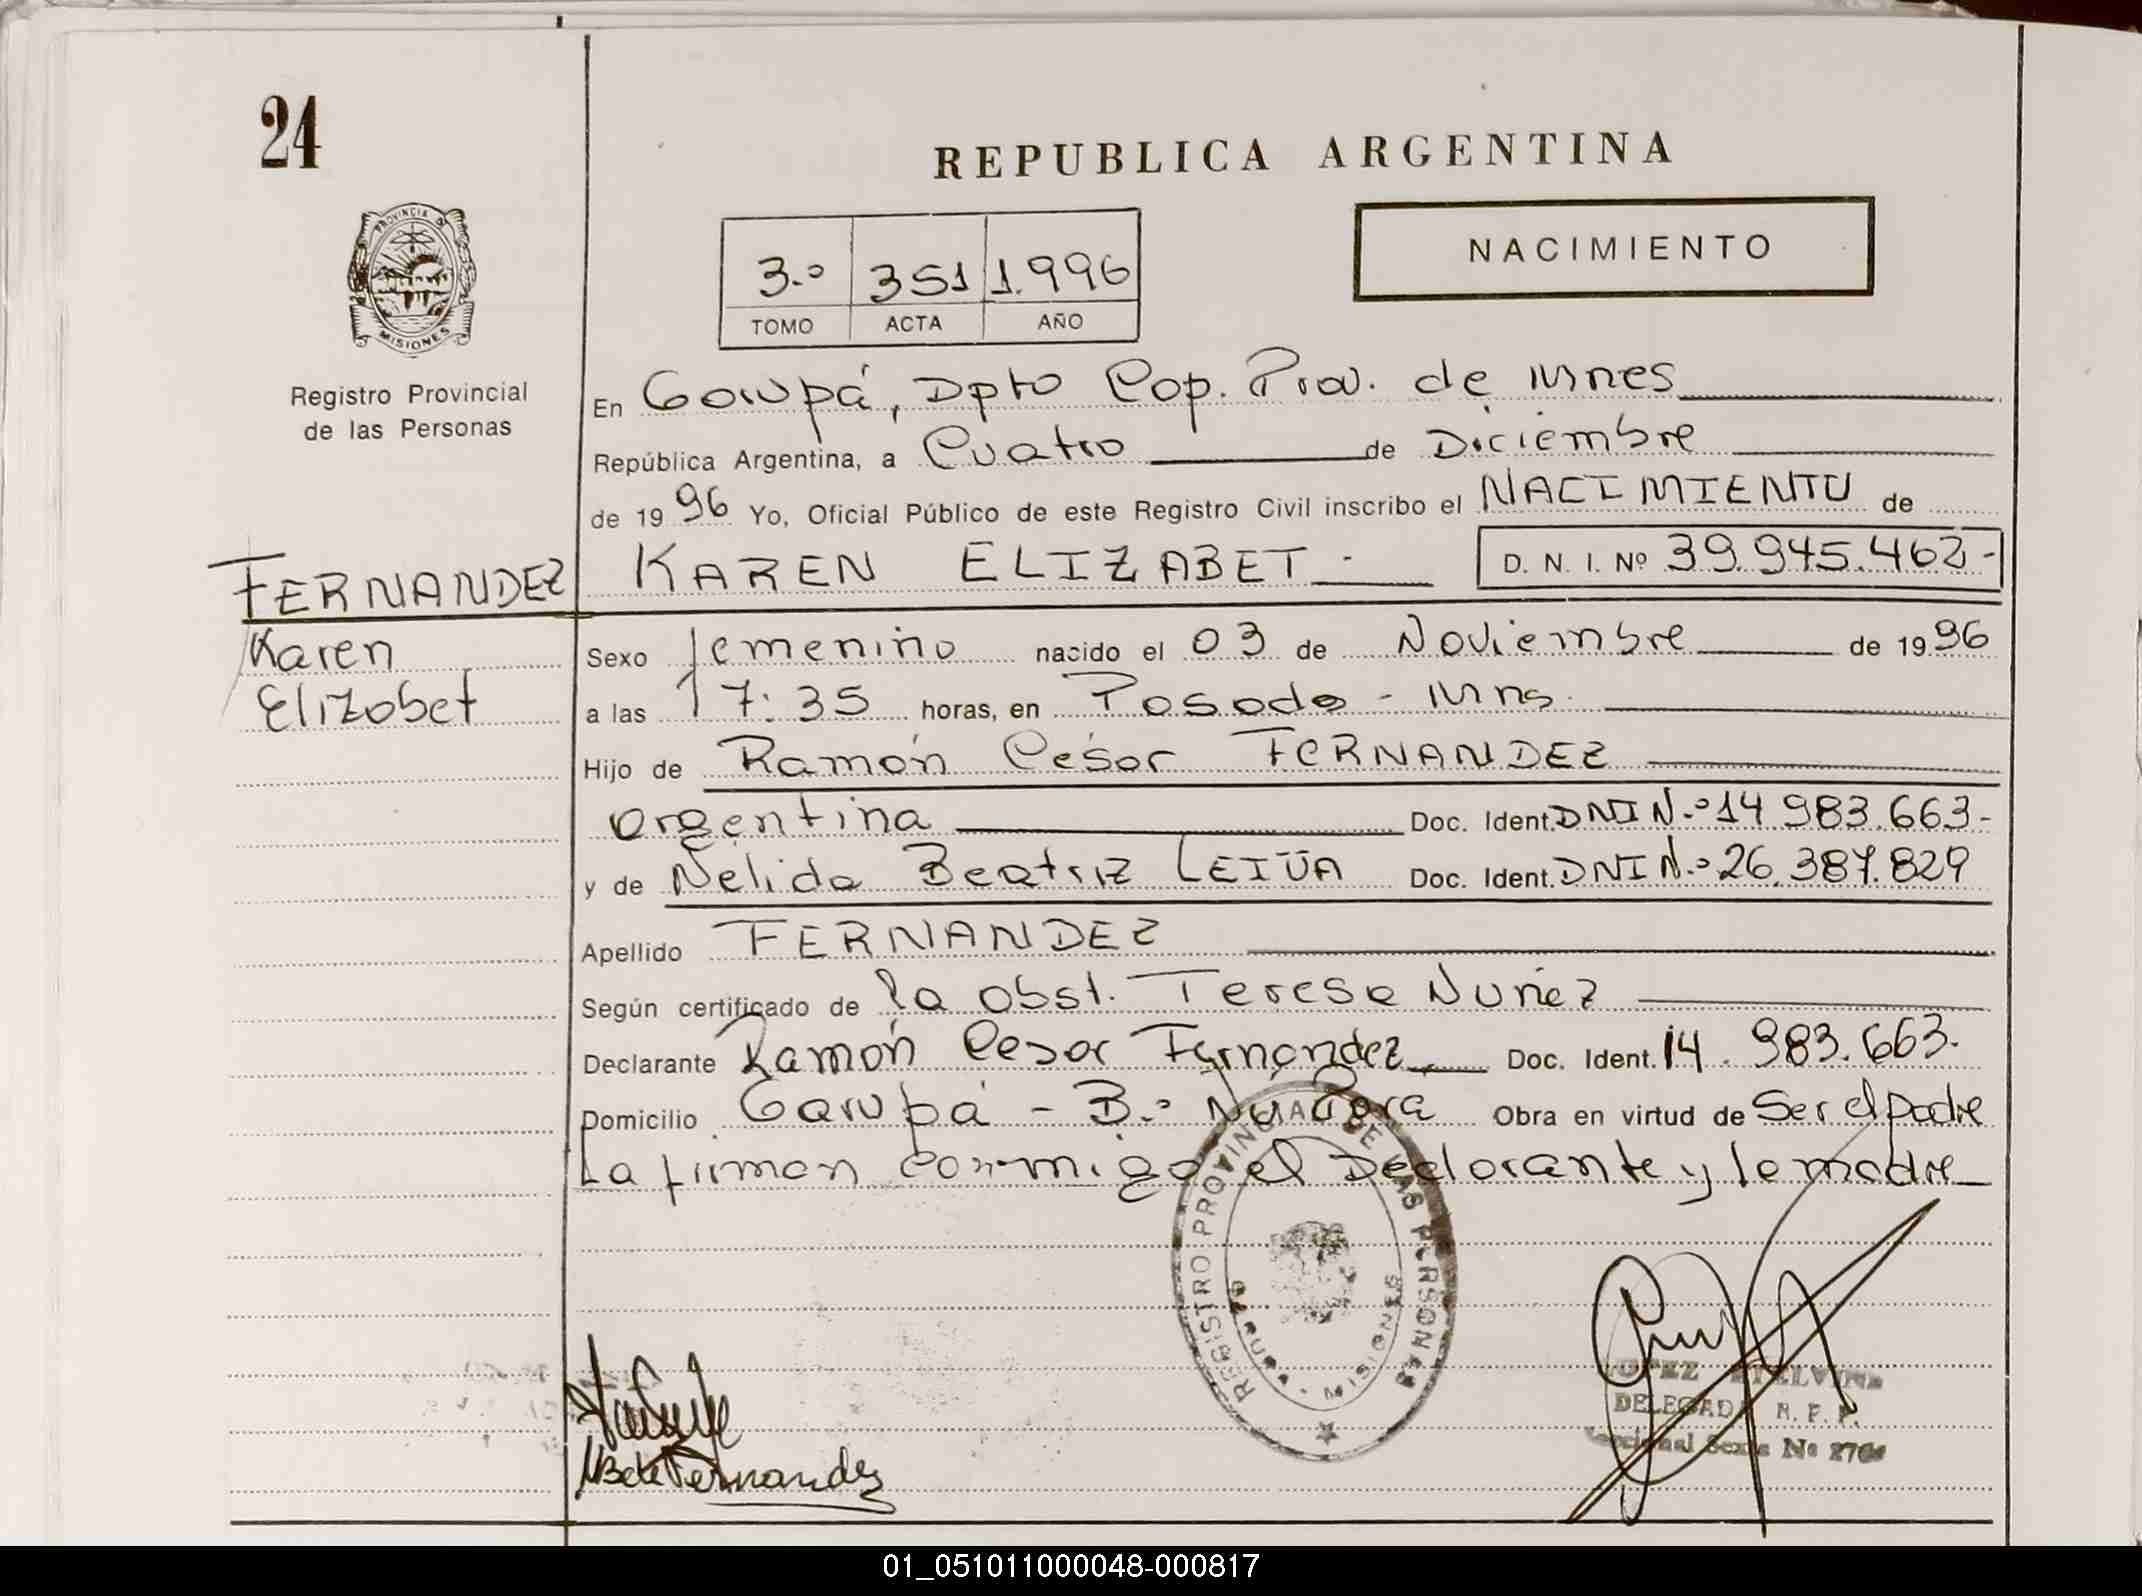 24
REPUBLICA ARGENTINA
PROVINCIA DE
MISIONES
NACIMIENTO
3.º 351 1.996
TOMO ACTA AÑO
Registro Provincial
de las Personas
En Garupá, Dpto Cap. Prov. de Mnes
República Argentina, a Cuatro de Diciembre
de 1996 Yo, Oficial Público de este Registro Civil inscribo el NACIMIENTO de
FERNANDEZ KAREN ELIZABET.- D. N. I. Nº 39.945.462-
Karen
Elizabet
Sexo femenino nacido el 03 de Noviembre de 1996
a las 17:35 horas, en Posadas - Mns.
Hijo de Ramón César FERNANDEZ
argentina Doc. Ident. DNI N.º 14.983.663-
y de Nélida Beatriz LEIVA Doc. Ident. DNI N.º 26.387.829
Apellido FERNANDEZ
Según certificado de la obst. Teresa Nuñez
Declarante Ramón Cesar Fernandez Doc. Ident. 14.983.663.
Domicilio Garupá - B.º Ñú Porá Obra en virtud de Ser el padre
La firman conmigo el Declarante y la madre
REGISTRO PROVINCIAL DE LAS PERSONAS
GARUPA - MISIONES
LOPEZ ETELVINA
DELEGADA R. P. P.
Seccional Sexta Nº
Fernandez
01_051011000048-000817